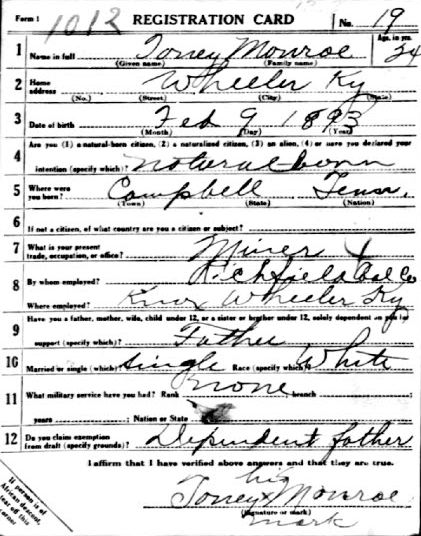 Form 1 1012 REGISTRATION CARD No. 19
1 Name in full Toney Monroe Age, in yrs. 24
(Given name) (Family name)
2 Home address Wheeler Ky
(No.) (Street) (City) (State)
3 Date of birth Feb 9 1893
(Month) (Day) (Year)
Are you (1) a natural-born citizen, (2) a naturalized citizen, (3) an alien, (4) or have you declared your
4 intention (specify which)? natural born
5 Where were you born? Campbell Tenn.
(Town) (State) (Nation)
6 If not a citizen, of what country are you a citizen or subject?
7 What is your present trade, occupation, or office? Miner
8 By whom employed? Richfield Coal Co
Where employed? Knox Wheeler Ky
Have you a father, mother, wife, child under 12, or a sister or brother under 12, solely dependent on you for
9 support (specify which)? Father
10 Married or single (which)? Single Race (specify which)? White
11 What military service have you had? Rank none branch
years ; Nation or State
12 Do you claim exemption from draft (specify grounds)? Dependent father
I affirm that I have verified above answers and that they are true.
his
Toney x Monroe
(Signature or mark)
mark
If person is of
African descent,
tear off this
corner.